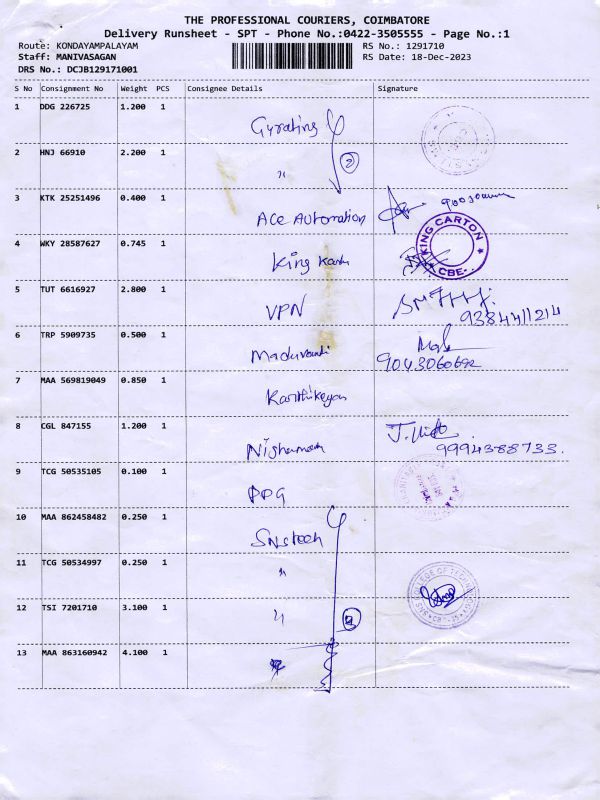 THE PROFESSIONAL COURIERS, COIMBATORE
Delivery Runsheet - SPT - Phone No.:0422-3505555 - Page No.:1
Route: KONDAYAMPALAYAM RS No.: 1291710
Staff: MANIVASAGAN RS Date: 18-Dec-2023
DRS No.: DCJB129171001
S No Consignment No Weight PCS Consignee Details Signature
1 DDG 226725 1.200 1 Gyrating
2 HNJ 66910 2.200 1 " 2
3 KTK 25251496 0.400 1 Ace Automation
4 WKY 28587627 0.745 1 King KING CARTON CBE
5 TUT 6616927 2.800 1 VPN 9384411214
6 TRP 5909735 0.500 1
7 MAA 569819049 0.850 1 Karthikeyan
8 CGL 847155 1.200 1 9994388733.
9 TCG 50535105 0.100 1 PPG
10 MAA 862458482 0.250 1 SNS tech
11 TCG 50534997 0.250 1 " COLLEGE OF TECHNO
12 TSI 7201710 3.100 1 "
13 MAA 863160942 4.100 1